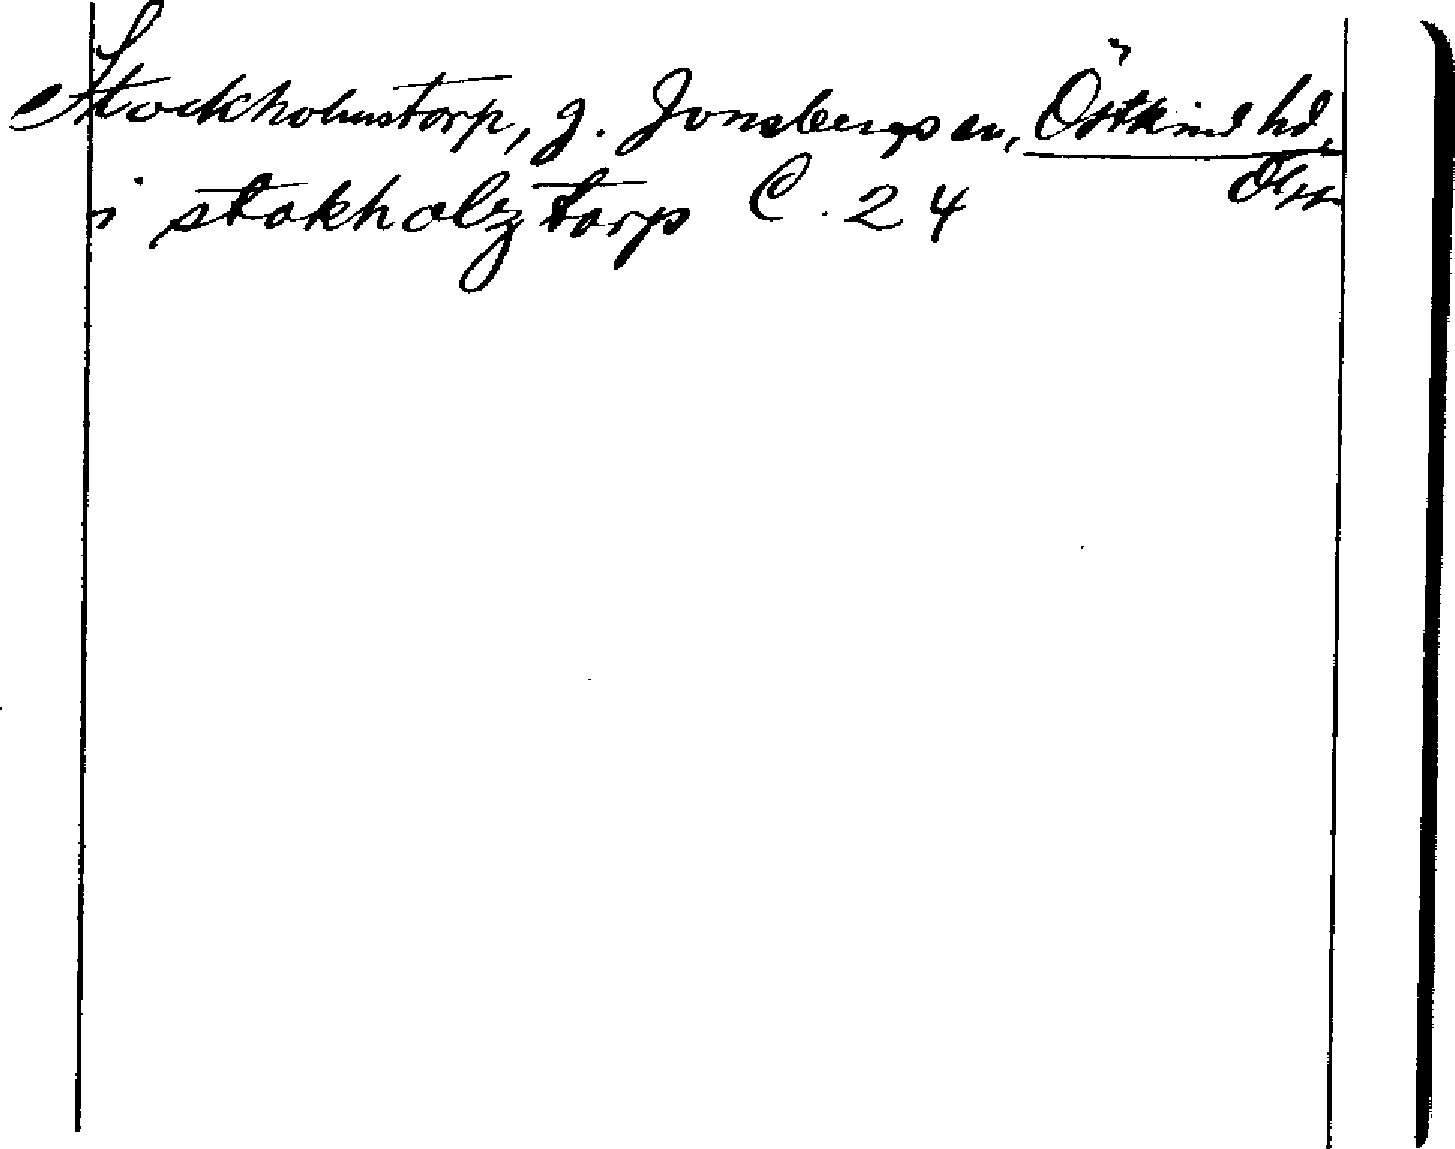 Stockholmstorp, g. Jonsbergs sn, Östkind hd,
Ög
i stokholz torp C. 24